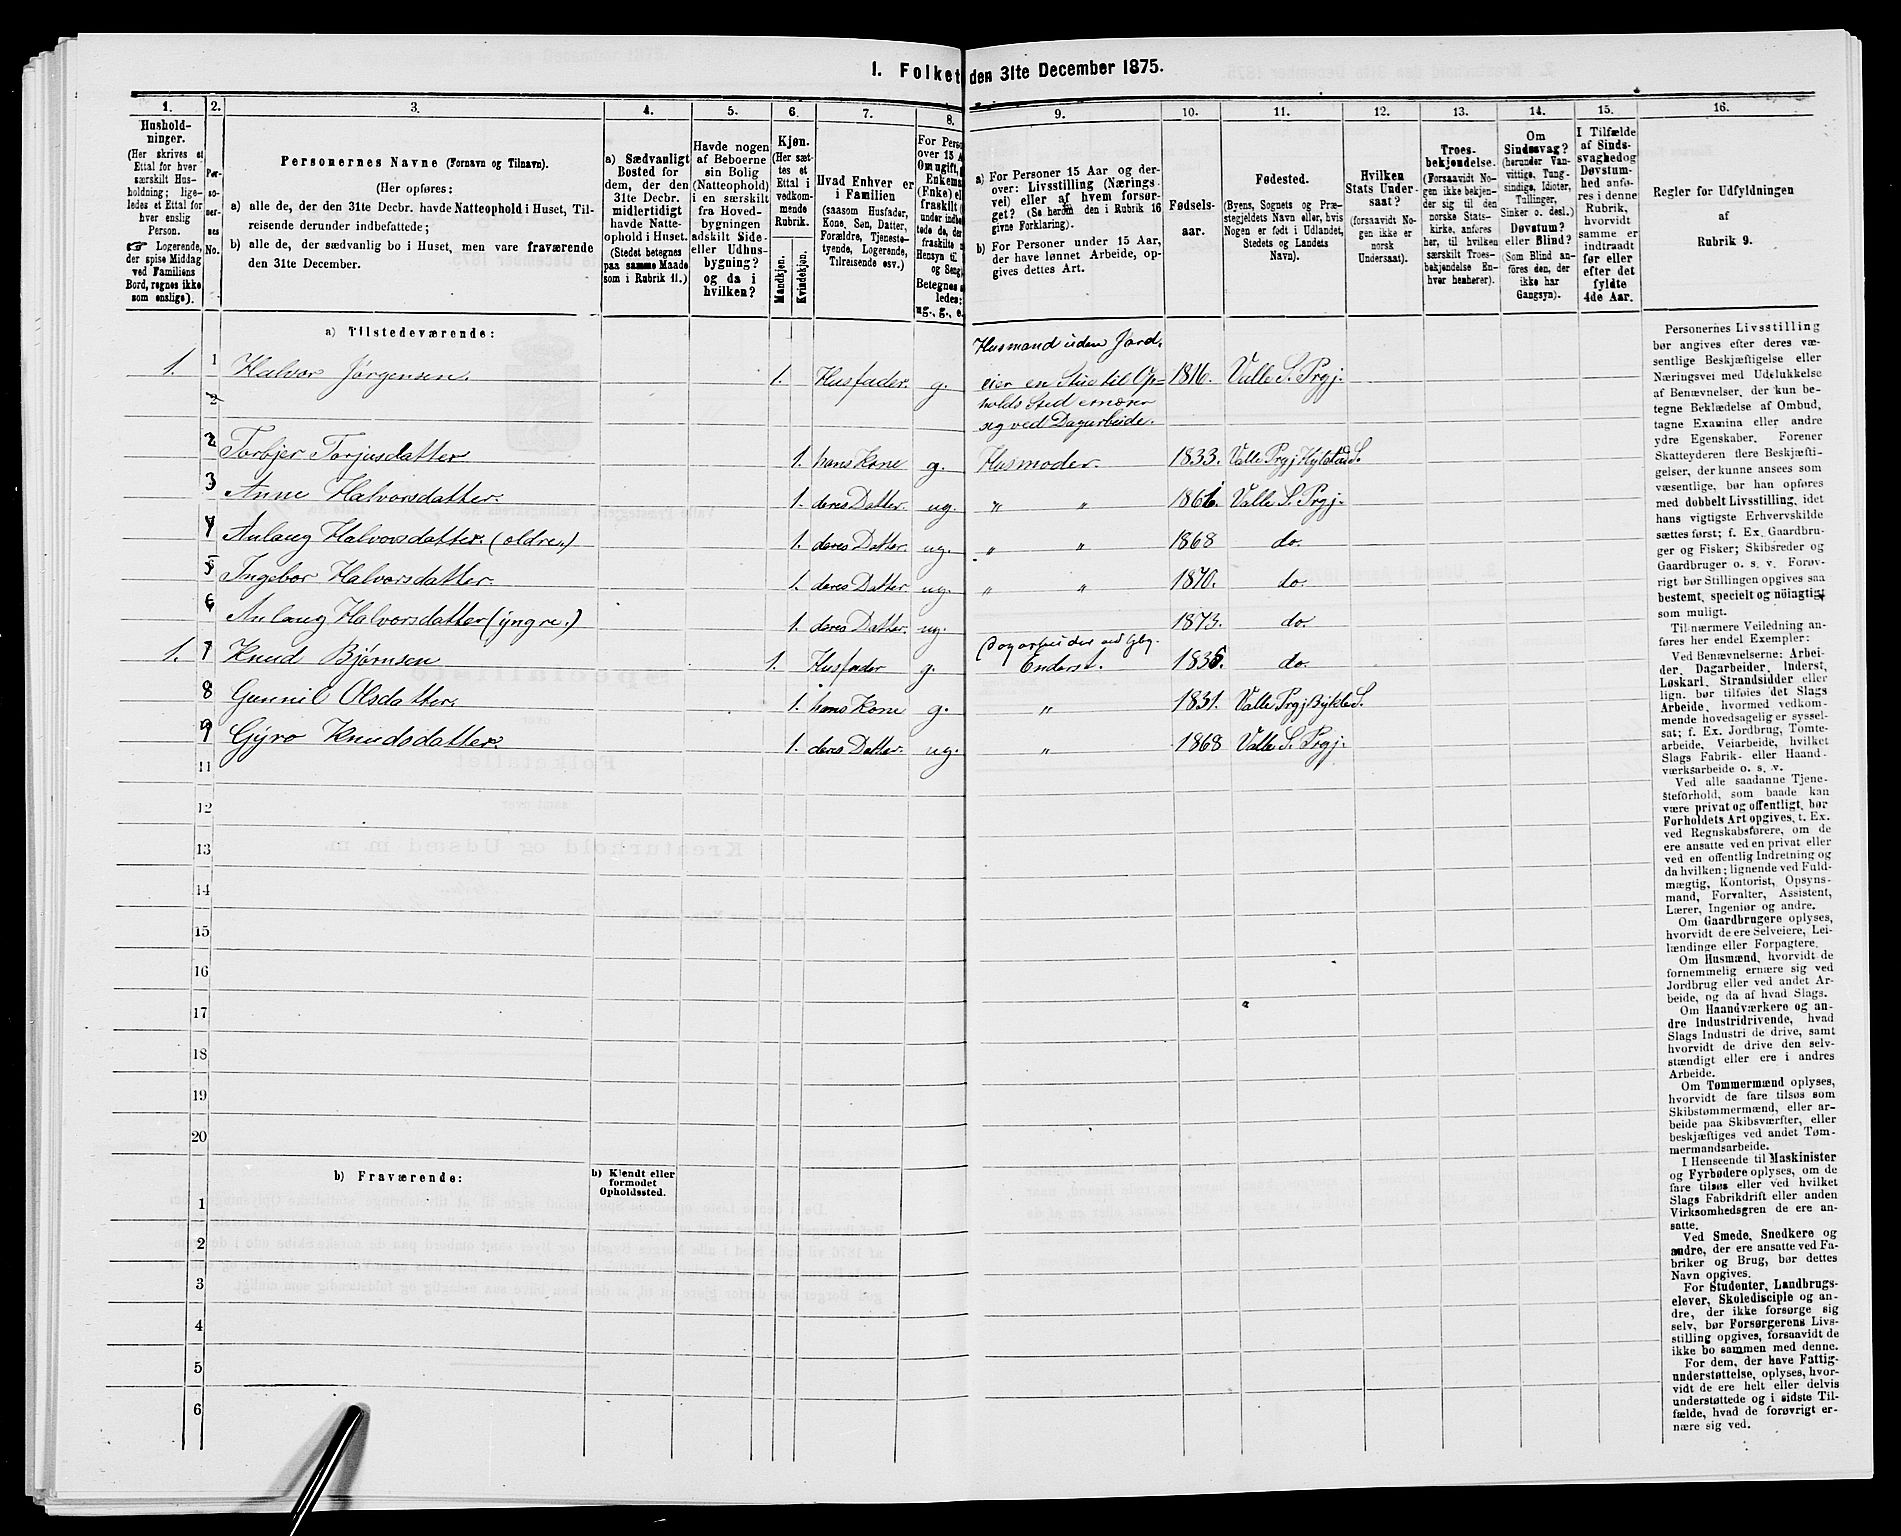 1. Folket den 31te December 1875.
1. 2. 3. 4. 5. 6. 7. 8. 9. 10. 11. 12. 13. 14. 15. 16.
Hushold-
ninger.
(Her skrives et
Ettal for hver
særskilt Hus-
holdning; lige-
ledes et Ettal for
hver enslig
Person.
☞ Logerende,
der spise Middag
ved Familiens
Bord, regnes ikke
som enslige).
Per-
so-
ner-
nes
No.
Personernes Navne (Fornavn og Tilnavn).
(Her opføres:
a) alle de, der den 31te Decbr. havde Natteophold i Huset, Til-
reisende derunder indbefattede;
b) alle de, der sædvanlig bo i Huset, men vare fraværende
den 31te December.
a) Sædvanligt
Bosted for
dem, der den
31te Decbr.
midlertidigt
havde Natte-
ophold i Huset.
(Stedet betegnes
paa samme Maade
som i Rubrik 11.)
Havde nogen
af Beboerne
sin Bolig
(Natteophold)
i en særskilt
fra Hoved-
bygningen
adskilt Side-
eller Udhus-
bygning?
og da i
hvilken?
Kjøn.
(Her sæt-
tes et
Ettal i
vedkom-
mende
Rubrik.
Mandkjøn.
Kvindekjøn.
Hvad Enhver er
i Familien
(saasom Husfader,
Kone, Søn, Datter,
Forældre, Tjeneste-
tyende, Logerende,
Tilreisende osv.)
For Perso
over 15 A
Om ugift,
Enkema
(Enke) e
fraskilt
Betegnes s
ledes:
ug., g., e.
a) For Personer 15 Aar og der-
over: Livsstilling (Nærings-
vei) eller af hvem forsør-
get? (Se herom den i Rubrik 16
givne Forklaring).
b) For Personer under 15 Aar,
der have lønnet Arbeide, op-
gives dettes Art.
Fødsels-
aar.
Fødested.
(Byens, Sognets og Præ-
stegjeldets Navn eller, hvis
Nogen er født i Udlandet,
Stedets og Landets
Navn).
Hvilken
Stats Under-
saat?
(forsaavidt No-
gen ikke er
norsk
Undersaat).
Troes-
bekjendelse.
(Forsaavidt No-
gen ikke bekjen-
der sig til den
norske Stats-
kirke, anføres
her, til hvilken
særskilt Troes-
bekjendelse En-
hver henhører).
Om
Sindssvag?
(herunder Van-
vittige, Tung-
sindige, Idioter,
Tullinger,
Sinker o. desl.)
Døvstum?
eller Blind?
(Som Blind an-
føres den, der
ikke har
Gangsyn).
I Tilfælde
af Sinds-
svaghed og
Døvstum-
hed anfø-
res i denne
Rubrik,
hvorvidt
samme er
indtraadt
før eller
efter det
fyldte
4de Aar.
Regler for Udfyldningen
af
Rubrik 9.
a) Tilstedeværende:
Husmand uden Jord.
1. 1 Halvor Jørgensen. 1. Husfader. g. eier en Stue til Op- 1816. Valle S. Prgj.
2 holds Sted ernærer
sig ved Dagarbeide.
2 Torbjer Torjusdatter 1. hans Kone g. Husmoder. 1833. Valle Prgj Hylestad S.
3 Anne Halvorsdatter. 1. deres Datter. ug. " " 1861. Valle S. Prgj.
4 Anlaug Halvorsdatter. (ældre.) 1. deres Datter. ug. " " 1868 do.
5 Ingebor Halvorsdatter. 1. deres Datter. ug. " " 1870. do.
6 Anlaug Halvorsdatter (yngre.) 1. deres Datter. ug. 1873. do.
Dagarbeider ved
1. 7 Knud Bjørnsen 1. Husfader g. 1835. do.
8 Gunnil Olsdatter. 1. hans Kone g. " 1831. Valle Prgj Bykle S.
9 Gyro Knudsdatter. 1. deres Datter. ug. " 1868 Valle S. Prgj.
11
12
13
14
15
16
17
18
19
20
b) Fraværende:
b) Kjendt eller
formodet
Opholdssted.
1
2
3
4
5
6
Personernes Livsstilling
bør angives efter deres væ-
sentlige Beskjæftigelse eller
Næringsvei med Udelukkelse
af Benævnelser, der kun be-
tegne Beklædelse af Ombud,
tagne Examina eller andre
ydre Egenskaber. Forener
Skatteyderen flere Beskjæfti-
gelser, der kunne ansees som
væsentlige, bør han opføres
med dobbelt Livsstilling, idet
hans vigtigste Erhvervskilde
sættes først; f. Ex. Gaardbru-
ger og Fisker; Skibsreder og
Gaardbruger o. s. v. Forøv-
rigt bør Stillingen opgives saa
bestemt, specielt og nöiagtigt
som muligt.
Til nærmere Veiledning an-
føres her endel Exempler:
Ved Benævnelserne: Arbei-
der, Dagarbeider, Inderst,
Løskarl, Strandsidder eller
lign. bør tilføies det Slags
Arbeide, hvormed vedkom-
mende hovedsagelig er syssel-
sat; f. Ex. Jordbrug, Tomte-
arbeide, Veiarbeide, hvilket
Slags Fabrik- eller Haand-
værksarbeide o. s. v.
Ved alle saadanne Tjene-
steforhold, som baade kan
være privat og offentligt, bør
Forholdets Art opgives, t. Ex.
ved Regnskabsførere, om de
ere ansatte ved en privat eller
ved en offentlig Indretning og
da hvilken; lignende ved Fuld-
mægtig, Kontorist, Opsyns-
mand, Forvalter, Assistent,
Lærer, Ingeniør og andre.
Om Gaardbrugere oplyses,
hvorvidt de ere Selveiere, Lei-
lændinge eller Forpagtere.
Om Husmænd, hvorvidt de
fornemmelig ernære sig ved
Jordbrug eller ved andet Ar-
beide, og da af hvad Slags.
Om Haandværkere og an-
dre Industridrivende, hvad
Slags Industri de drive, samt
hvorvidt de drive den selv-
stændigt eller ere i andres
Arbeide.
Om Tømmermænd oplyses,
hvorvidt de fare tilsøs som
Skibstømmermænd, eller ar-
beide paa Skibsværfter, eller
beskjæftiges ved andet Tøm-
mermandsarbeide.
I Henseende til Maskinister
og Fyrbødere oplyses, om de
fare tilsøs eller ved hvilket
Slags Fabrikdrift eller anden
Virksomhedsgren de ere an-
satte.
Ved Smede, Snedkere og
andre, der ere ansatte ved Fa-
briker og Brug, bør dettes
Navn opgives.
For Studenter, Landbrugs-
elever, Skoledisciple og an-
dre, der ikke forsørge sig
selv, bør Forsørgerens Livs-
stilling opgives, forsaavidt de
ikke bo sammen med denne.
For dem, der have Fattig-
understøttelse, oplyses, hvor-
vidt de ere helt eller delvis
understøttede og i sidste Til-
fælde, hvad de forøvrigt er-
nære sig ved.